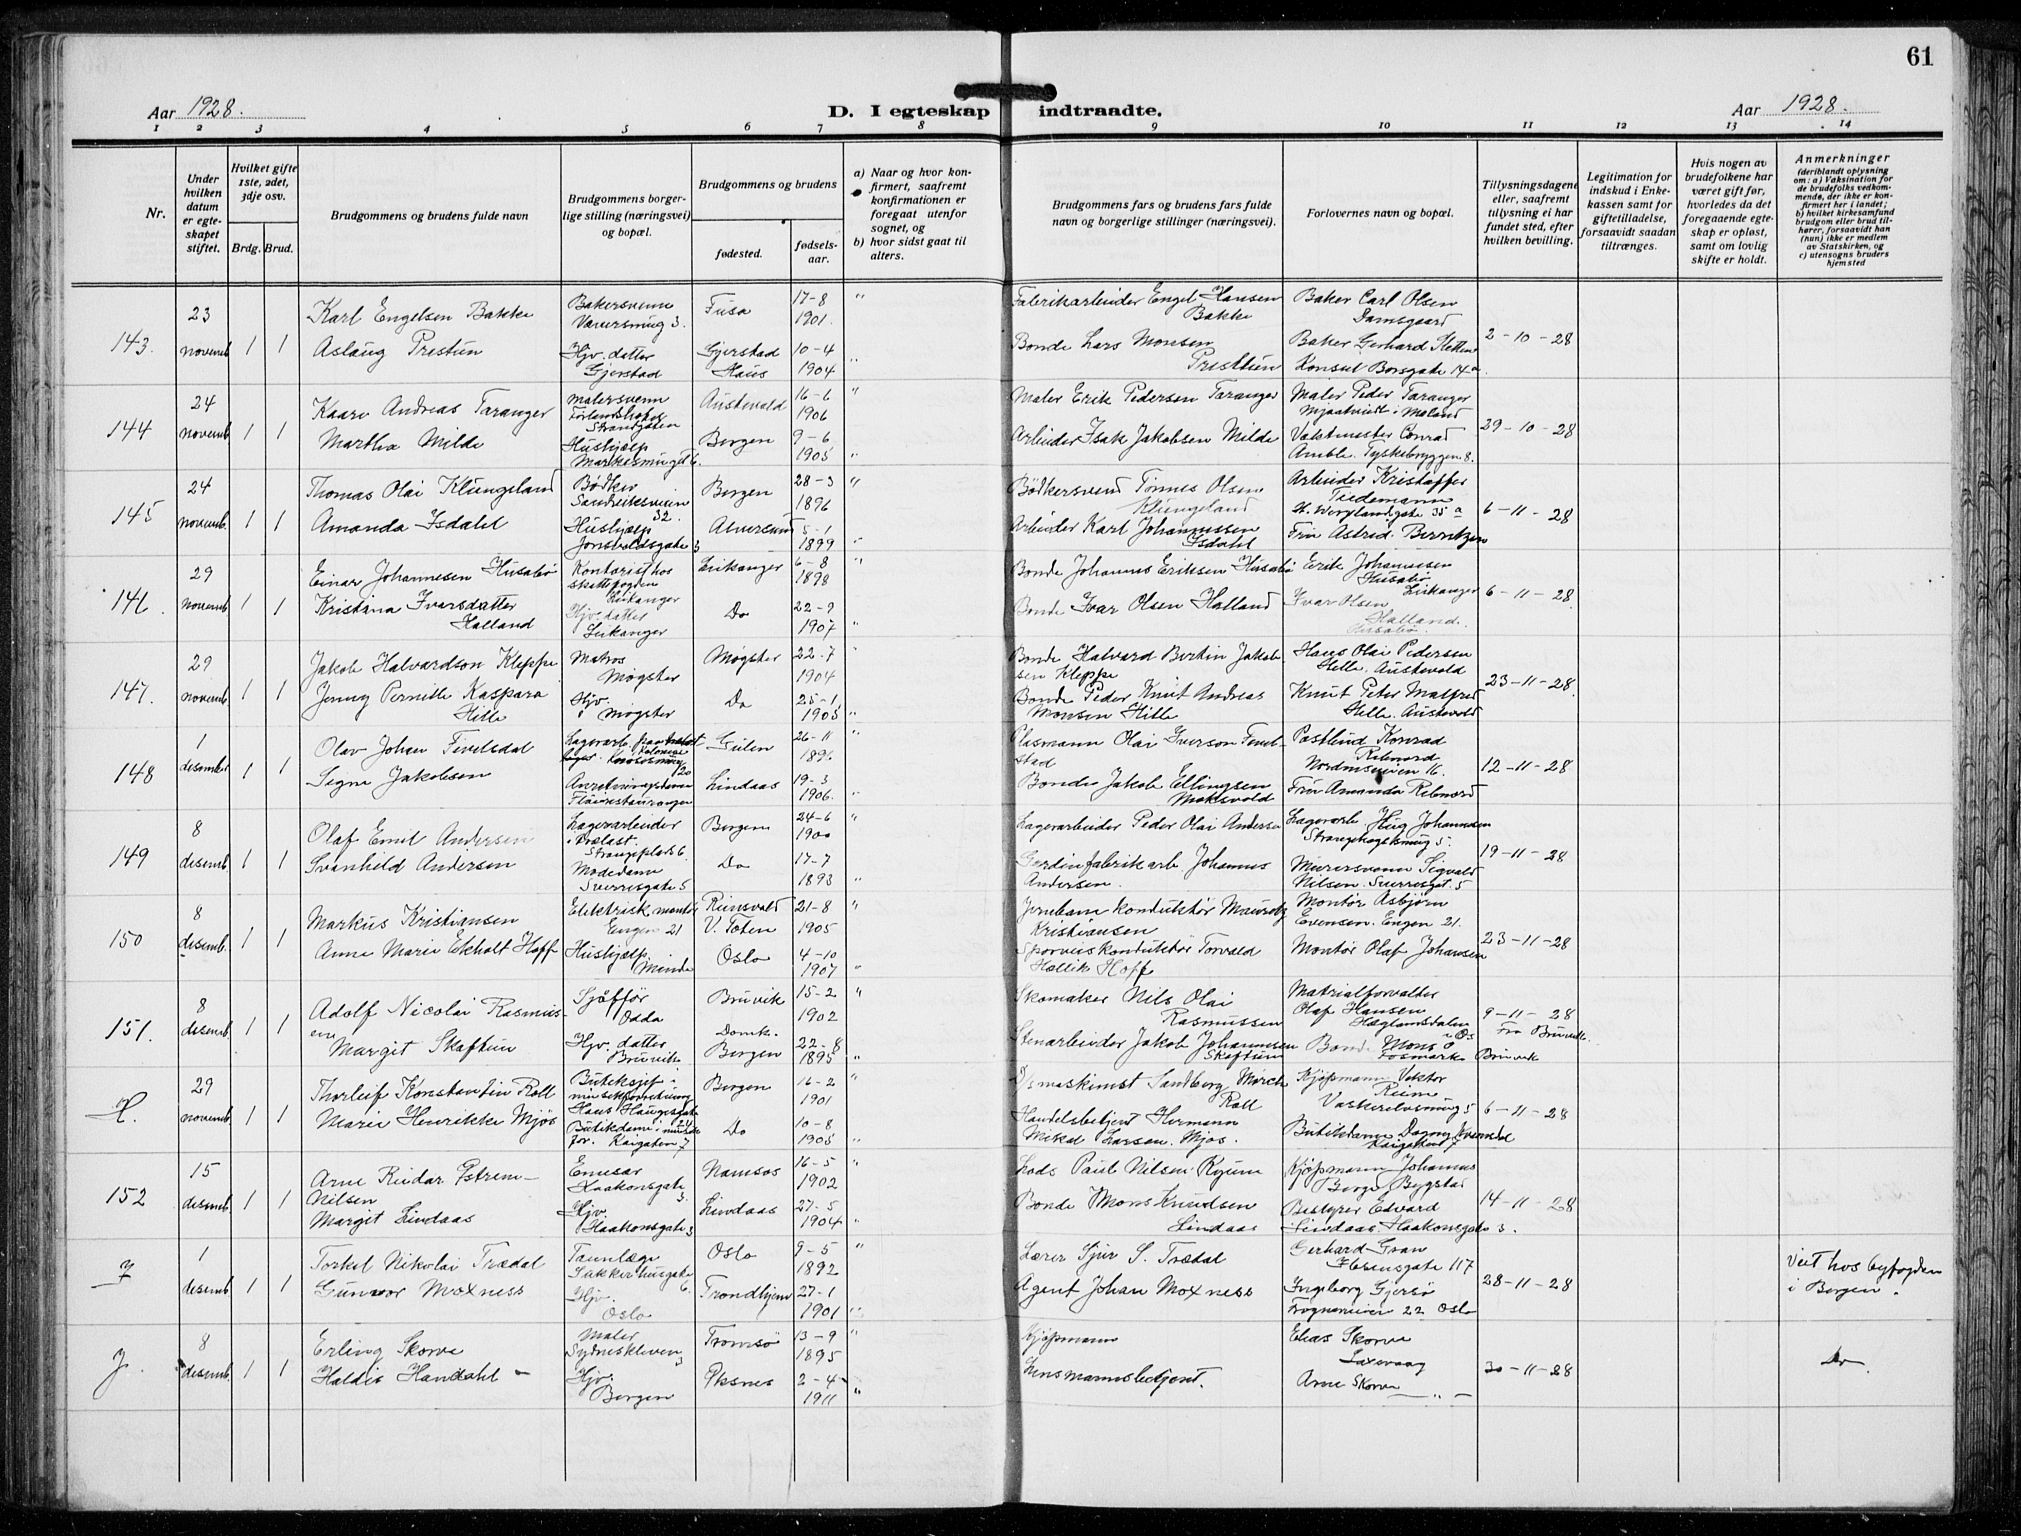 61
Aar 1928.
D. I egteskap indtraadte.
Aar 1928.
1 2 3 4 5 6 7 8 9 10 11 12 13 14
Nr.
Under hvilken datum er egteskapet stiftet.
Hvilket gifte 1ste, 2det, 3dje osv.
Brdg. Brud.
Brudgommens og brudens fulde navn
Brudgommens borgerlige stilling (næringsvei) og bopæl.
Brudgommens og brudens
fødested.
fødselsaar.
a) Naar og hvor konfirmert, saafremt konfirmationen er foregaat utenfor sognet, og
b) hvor sidst gaat til alters.
Brudgommens fars og brudens fars fulde navn og borgerlige stillinger (næringsvei).
Forlovernes navn og bopæl.
Tillysningsdagene eller, saafremt tillysning ei har fundet sted, efter hvilken bevilling.
Legitimation for indskud i Enkekassen samt for giftetilladelse, forsaavidt saadan tiltrænges.
Hvis nogen av brudefolkene har været gift før, hvorledes da det foregaaende egteskap er opløst, samt om lovlig skifte er holdt.
Anmerkninger
(deriblandt oplysning om: a) Vaksination for de brudefolks vedkommende, der ikke er konfirmert her i landet;
b) hvilket kirkesamfund brudgom eller brud tilhører, forsaavidt han (hun) ikke er medlem av Statskirken, og
c) utensogns bruders hjemsted
143. 23 novemb. 1 1
Karl Engelsen Bakke
Bakersvenn
Vaversmug 3.
Fusa
17-8
1901.
"
Fabrikarbeider Engel Hansen
Bakke
Baker Carl Olsen
Damsgaard
2-10-28
Aslaug Prestun
Hjv. datter
Gjerstad
Gjerstad
Haus
10-4
1904
"
Bonde Lars Monsen
Presttun
Baker Gerhard
Konsul Børsgate 14a.
144 24 novemb. 1 1
Kaare Andreas Taranger
Malersvenn
Strandgaten
Austevold
16-6
1906
"
Maler Erik Pedersen Taranger
Maler Peder Taranger
29-10-28
Martha Milde
Hushjælp
Markesmuget 6.
Bergen
9-6
1905
"
Arbeider Isak Jakobsen Milde
Vaktmester Conrad
Amble. Tyskebryggen 8.
145 24 novemb. 1 1
Thomas Olai Klungeland
Bødker
Sandviksveien
32.
Bergen
28-3
1896
"
Bødkersvend Tønnes Olsen
Klungeland
Arbeider Kristoffer
Tiedemann
H. Wergelandsgate 35 a
6-11-28
Amanda Isdahl
Hushjælp
Alversund
5-1
1899
"
Arbeider Karl Johannessen
Isdahl
Fru Astrid Berntzen
146. 29 novemb 1 1
Einar Johannesen Husabø
Kontorist hos
skattefogden
Leikanger
Leikanger
6-8
1898
"
Bonde Johannes Eriksen Husabø
Erik Johannesen
Husabø
Leikanger
6-11-28.
Kristina Ivarsdatter
Halland
Hjv. datter
Leikanger
Do
22-9
1907
"
Bonde Ivar Olsen Halland
Ivar Olsen
Halland.
Husabø.
147. 29 novemb. 1 1
Jakob Halvardson Kleppe
Matros
Møgster
Møgster
22-7
1904
"
Bonde Halvard Bertin Jakobsen Kleppe
Hans Olai Pedersen
Hille. Austevold
23-11-28.
Jenny Pernille Kaspara
Hille
Hjv.
i Møgster
Do
25-1
1905
"
Bonde Peder Knut Andreas
Monsen Hille
Knut Peter Malfred
Hille. Austevold
148 1 desember 1 1
Olav Johan
Gulen
26-11
1896
Olai Iverson
Postbud Konrad
Nordnesveien 16.
12-11-28
Signe Jakobsen
Lindaas
19-3
1906.
"
Bonde Jakob Ellingsen
Fru Amanda
149 8 desemb. 1 1
Olaf Emil Andersen
Lagerarbeider
Strangeplads 6.
Bergen
24-6
1900
Lagerarbeider Peder Olai Andersen
Lagerarb.
19-11-28
Svanhild Andersen
Modedame
Sverresgate 5
Do
17-7
1893
"
Gardinfabrikarb Johannes
Andersen.
Murersvenn Sigvald
Nilsen. Sverresgt. 5
150 8 desemb. 1 1
Markus Kristiansen
Elektrisk montør
Engen 21
V. Toten
21-8
1905
"
Jernbane konduktør Mauritz
Kristiansen
Montør Asbjørn
Evensen. Engen 21.
23-11-28
Anne Marie Ekholt Hoff
Hushjelp.
Minde
Oslo
4-10
1907
"
Sporveis konduktør Torvald
Hoff
Montør Olaf Johansen
151. 8 desemb. 1 1
Adolf Nicolai Rasmussen
Sjåfør
Odda
Bruvik
15-2
1902
"
Skomaker Nils Olai
Rasmussen
Matrialforvalter
Olaf Hansen
9-11-28
Fra Bruvik.
Margit Skaftun
Hjv. datter
Bruvik
Domk.
Bergen
22-8
1895
"
Stenarbeider Jakob Johannesen
Skaftun
Bonde Mons
Bruvik
29 novemb. 1 1
Thorleif Konstantin Roll
Bergen
16-2
1901
"
Sandberg Mørch
Roll
Kjøpmann Viktor
6-11-28
Marie Henrikke Mjøs
Kaigaten 7
Do
10-8
1905
"
Handelsbetjent Hermann
Mikal Larsen. Mjøs.
Butikdame Dagny
Kaigaten 7
152 15 desemb. 1 1
Arne Reidar
Nilsen
Haakonsgate
3.
Namsos
16-5
1902
"
Lods Paul Nilsen
Kjøpmann Johannes
Berge Bygstad
14-11-28
Margit Lindaas
Hjv.
Haakonsgate 3
Lindaas
27-5
1904
"
Bonde Mons Knudsen
Lindaas
Bestyrer Edvard
Lindaas Haakonsgate 3.
7 1 desemb. 1 1
Torkel Nikolai Trædal
Tannlæge
Sukkerhusgate
6.
Oslo
9-5
1892
"
Lærer Sjur S. Trædal
Gerhard Gran
117
28-11-28
Viet hos byfogden
i Bergen.
Gunvor Moxness
Hjv.
Oslo
Trondhjem
27-1
1901
"
Agent Johan Moxness
Ingeborg Gjersø
Frognerveien 22 Oslo
8 desemb. 1 1
Erling Skorve
Maler
Sydneskleven
3
Tromsø
13-9
1895
"
Kjøpmann
Elias Skorve
Laxevaag
30-11-28
Do
Haldis Handahl
Hjv.
Bergen
Øksnes
2-4
1911
"
Lensmannsbetjent.
Arne Skorve
— " —